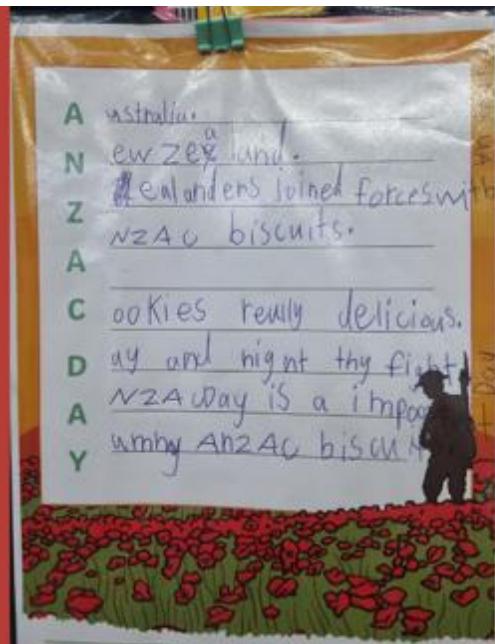 A ustralia.
N ew Zealand.
Z ealanders joined forces with
A NZAC biscuits.
C ookies really delicious.
D ay and night thy fight
A NZAC Day is a impo
Y ummy ANZAC biscu